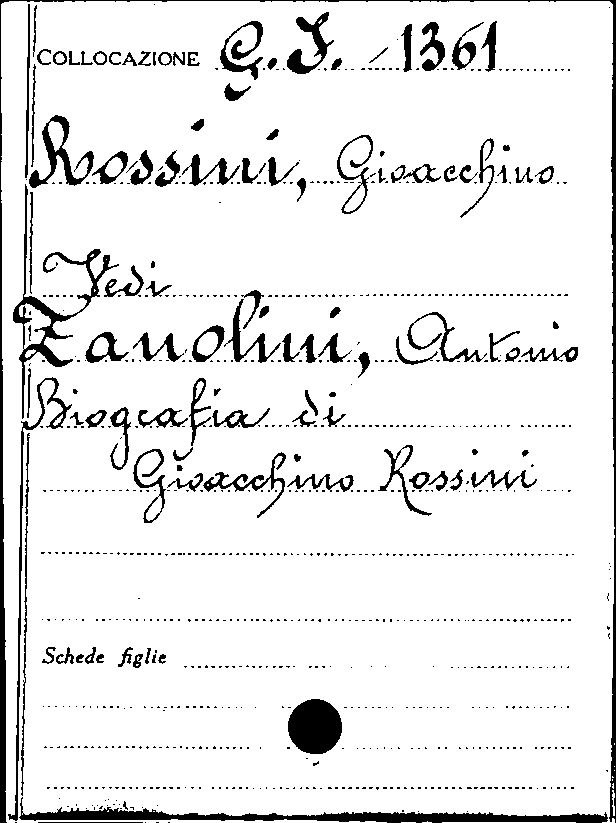 COLLOCAZIONE G. I. 1361
Rossini, Gioacchino
Vedi
Zanolini, Antonio
Biografia di
Gioacchino Rossini
Schede figlie